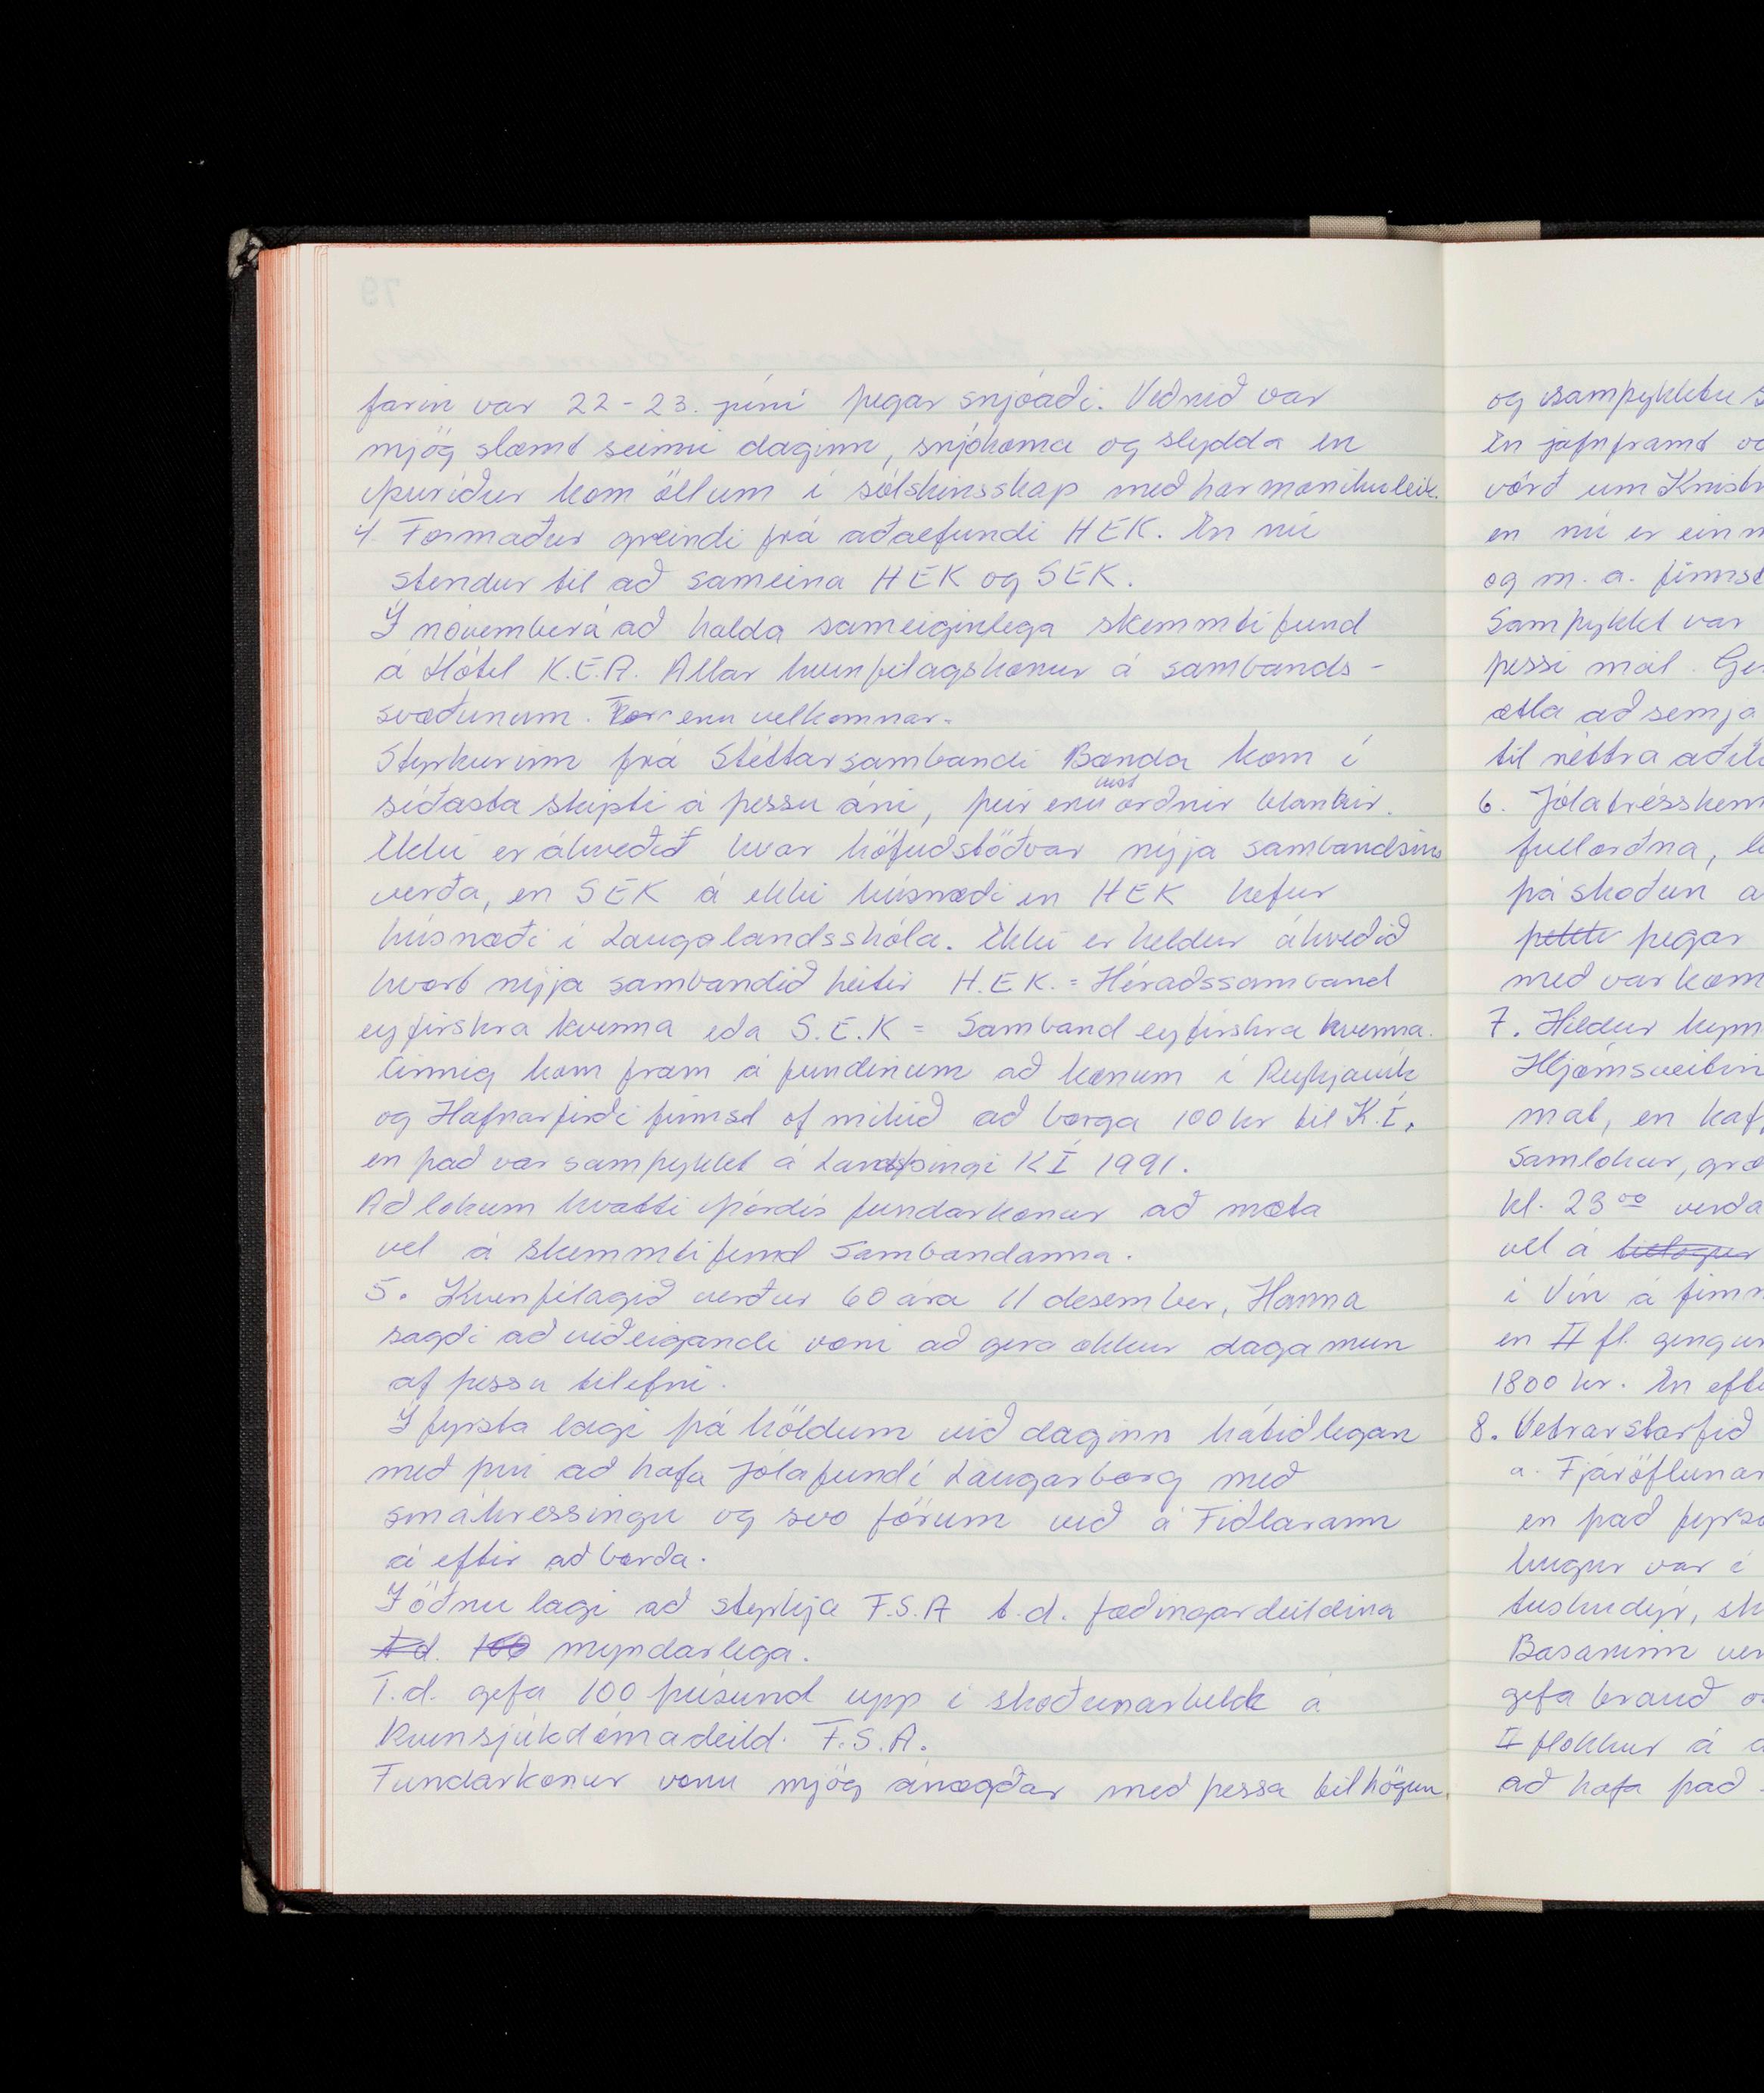 farin var 22-23. júní þegar snjóaði. Veðrið var
mjög slæmt seinni daginn, snjókoma og slydda en
Þuríður kom öllum í sólskinsskap með harmonikuleik.
4. Formaður greindi frá aðalfundi HEK. En nú
stendur til að sameina HEK og SEK.
Í nóvember á að halda sameiginlega skemmtifund
á Hótel K.E.A. Allar kvenfélagskonur á sambands-
svæðunum. eru velkomnar.
Styrkurinn frá Stéttarsambandi Bænda kom í
síðasta skipti á þessu ári, þeir eru víst orðnir blankir.
Ekki er ákveðið hvar höfuðstöðvar nýja sambandsins
verða, en SEK á ekki húsnæði en HEK hefur
húsnæði í Laugalandsskóla. Ekki er heldur ákveðið
hvort nýja sambandið heitir H.E.K. = Héraðssamband
eyfirskra kvenna eða S.E.K = Samband eyfirskra kvenna.
Einnig kom fram á fundinum að konum í Reykjavík
og Hafnarfirði finnst of mikið að borga 100 kr til K.Í.
en það var samþykkt á Landsþingi KÍ 1991.
Að lokum hvatti Þórdís fundarkonur að mæta
vel á skemmtifund Sambandanna.
5. Kvenfélagið verður 60 ára 11 desember, Hanna
sagði að viðeigandi væri að gera okkur dagamun
af þessu tilefni.
Í fyrsta lagi þá höldum við daginn hátíðlegan
með því að hafa jólafund í Laugarborg með
smáhressingu og svo förum við á Fiðlarann
á eftir að borða.
Í öðru lagi að styrkja F.S.A t.d. fæðingardeildina
t.d. 100 myndarlega.
T.d. gefa 100 þúsund upp í skoðunarbekk á
Kvensjúkdómadeild. F.S.A.
Fundarkonur voru mjög ánægðar með þessa tilhögun.
og samþykktu s
En jafnframt va
vörð um Kristn
en nú er einn
og m.a. finnst
Samþykkt var
þessi mál. Ge
ætla að semja
til réttra aðila
6. Jólatrésskem
fullorðna, le
þá skoðun a
þegar
með var kom
7. Hildur kyn
Hljómsveitin
mat, en kaf
Samlokur, græ
kl. 23 00 verða
vel á
í Vín á fimm
en II fl. gengur
1800 kr. En eft
8. Vetrarstarfið
a. Fjáröflunar
en það fyrs
hugur var í
tuskudýr, sk
Basarinn ver
gefa brauð o
II flokkur á a
að hafa það